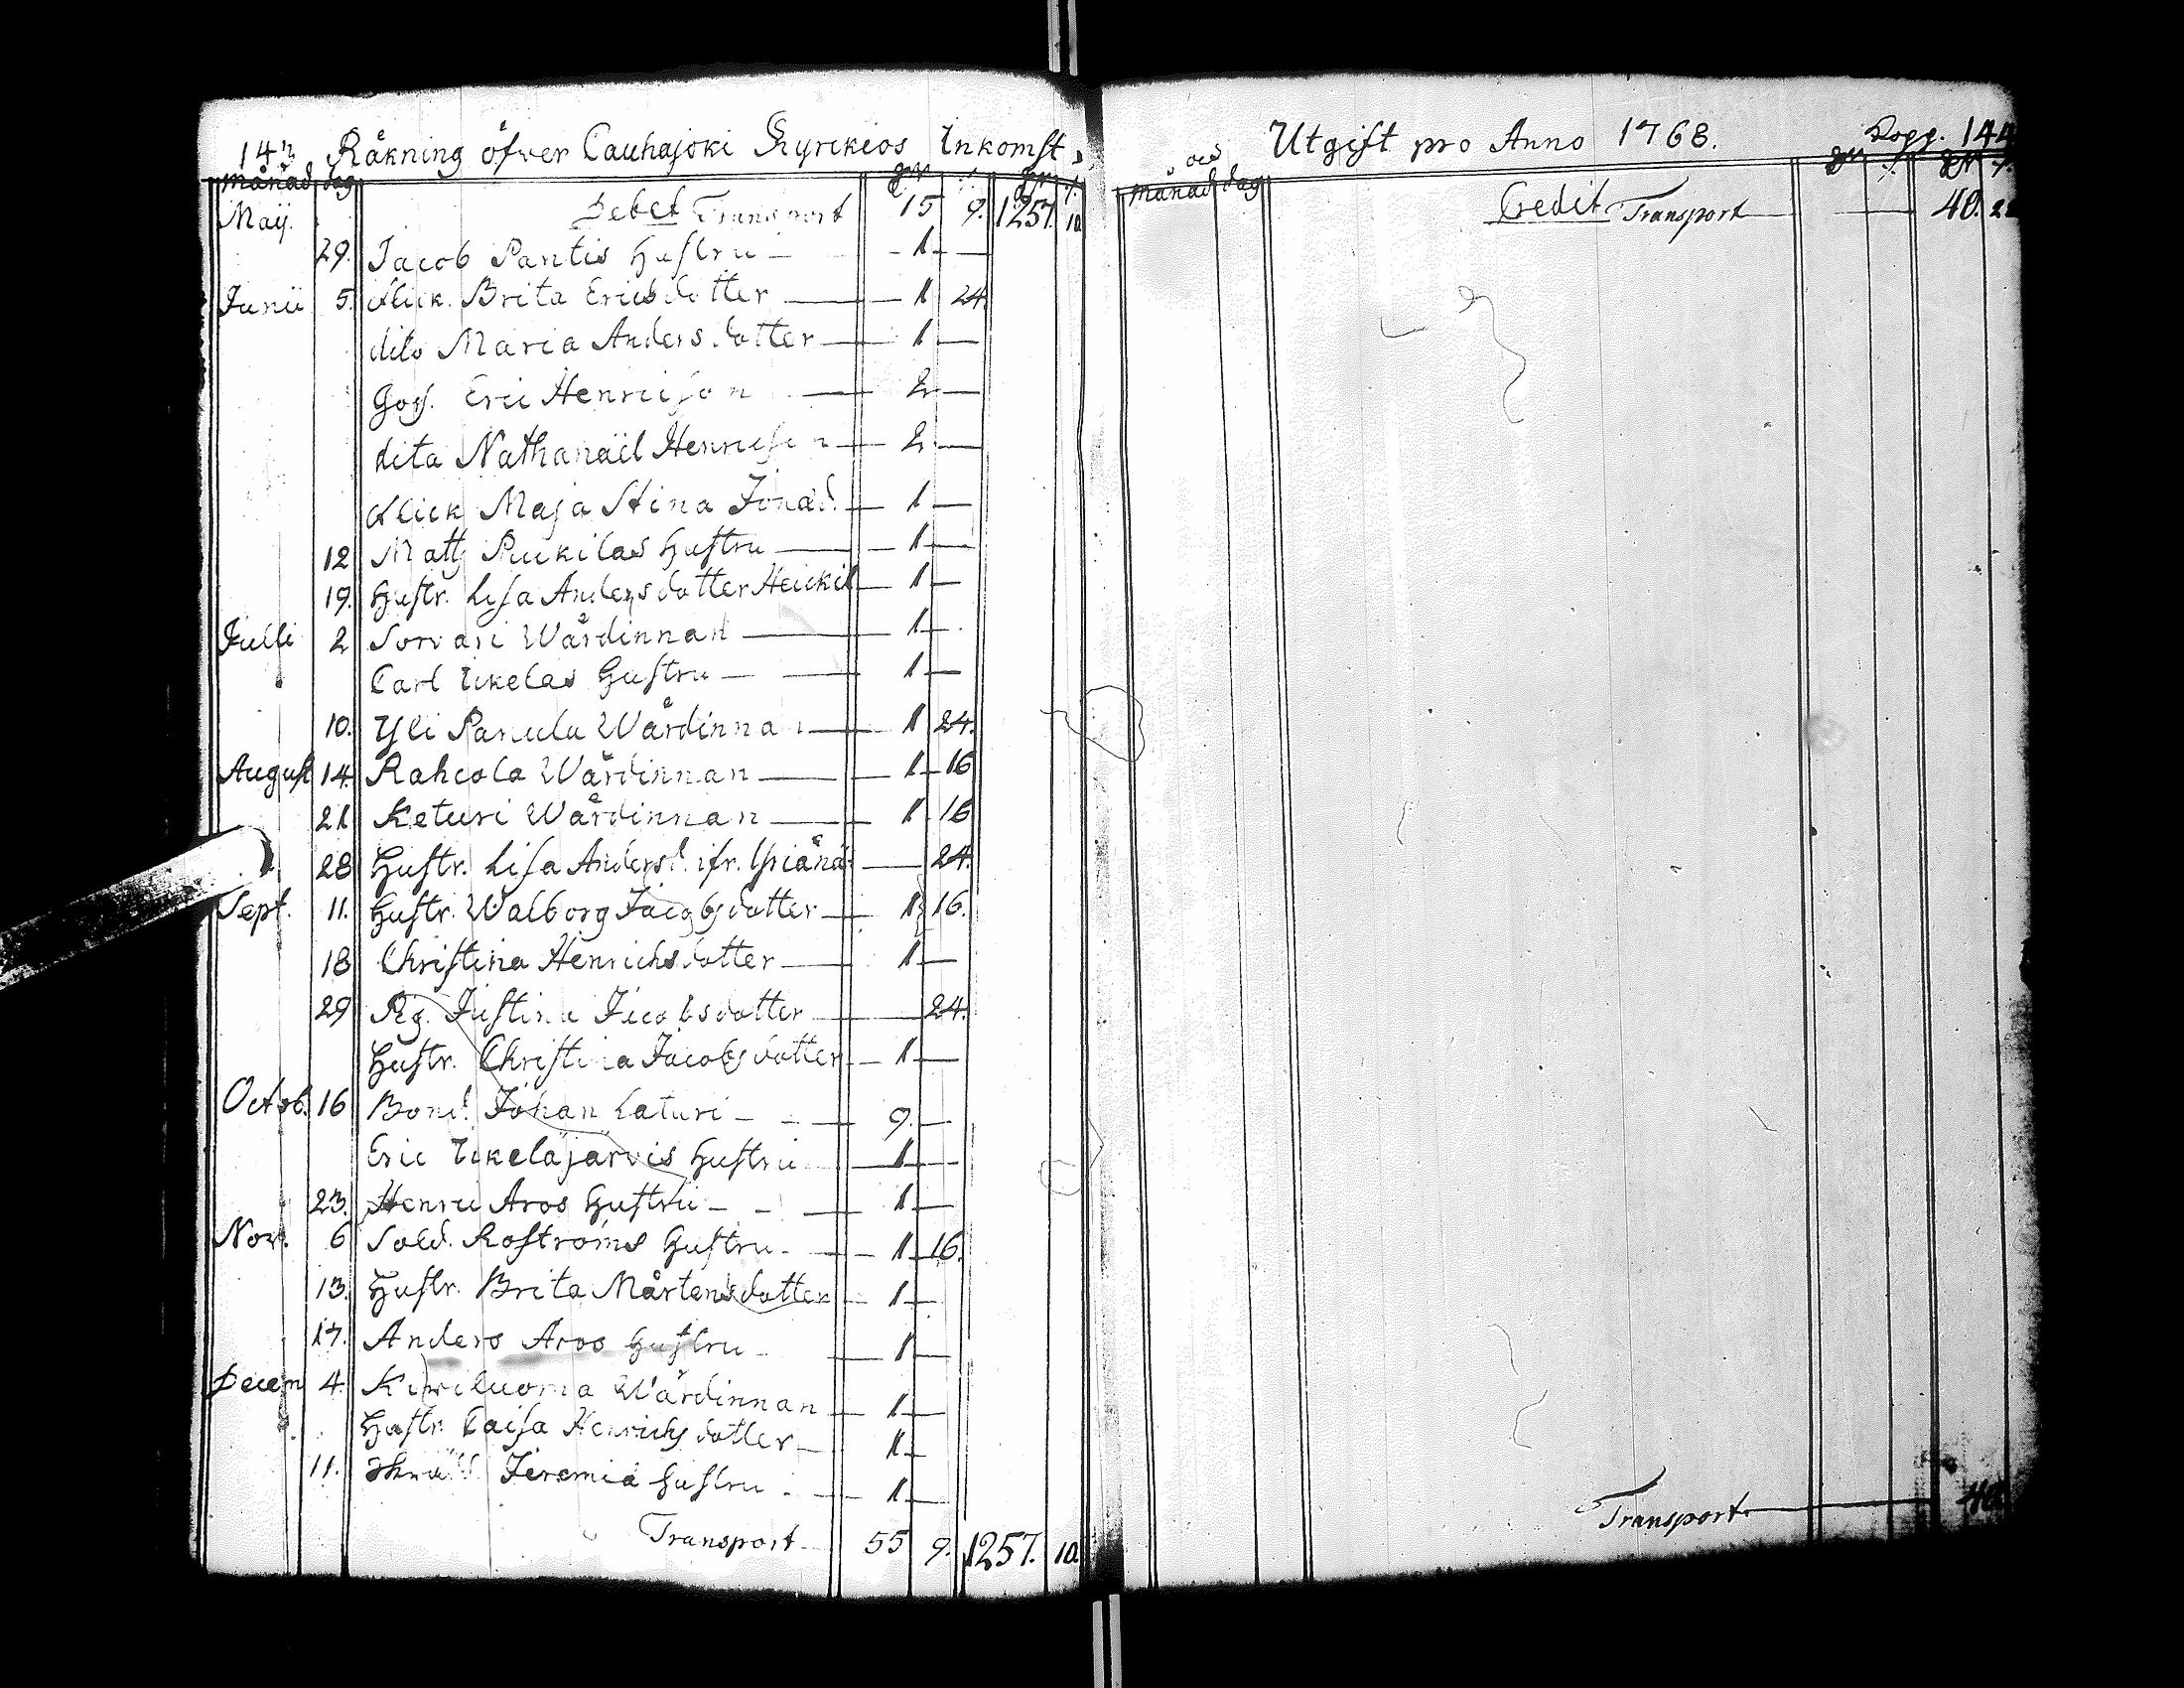 143 Räkning öfwer Cauhajoki Kyrkios Inkomst
månad dag
Maij. Debet Transport 15 9. 1257. 10
29. Jacob Pantis Hustru — 1 —
Junii 5. Pick. Brita Ericsdotter — 1 24.
dito Maria Andersdotter — 1 —
Goss. Eric Henricson — 2 —
dito Nathanaël Henricson — 2 —
Pick Maja Stina Jonæd. — 1 —
12 Matts Pukilas Hustru — 1 —
19. Hustr. Lisa Andersdotter Heickil — 1 —
Julli 2 Sorvari Wärdinnan — 1 —
Carl Ikelas Hustru — 1 —
10. Yli Panula Wärdinna — 1 24.
August 14. Rahcola Wärdinnan — 1 16
21 Keturi Wärdinnan — 1 16
28 Hustr. Lisa Andersd. ifr. — 24.
Sept. 11. Hustr. Walborg Jacobsdotter — 1 16.
18 Christina Henrichsdotter — 1 —
29 Pig. Justina Jacobsdotter — 24.
Hustr. Christina Jacobsdotter — 1 —
Octob. 16 Bond. Johan Laturi — 9. —
Eric Ikeläjärvis Hustru — 1 —
23. Henric Aros Hustru — 1 —
Nov. 6 Sold. Roströms Hustru — 1 16.
13. Hustr. Brita Mårtensdotter — 1 —
17. Anders Aros Hustru — 1 —
Decem 4. Kiviluoma Wärdinnan — 1 —
Hustr. Caisa Henrichsdotter — 1 —
11. Jeremiä Hustru — 1 —
Transport 55 9. 1257. 10.
och Utgift pro Anno 1768. Pagg. 144
månad dag
Credit Transport — 40. 2
Transport — 40